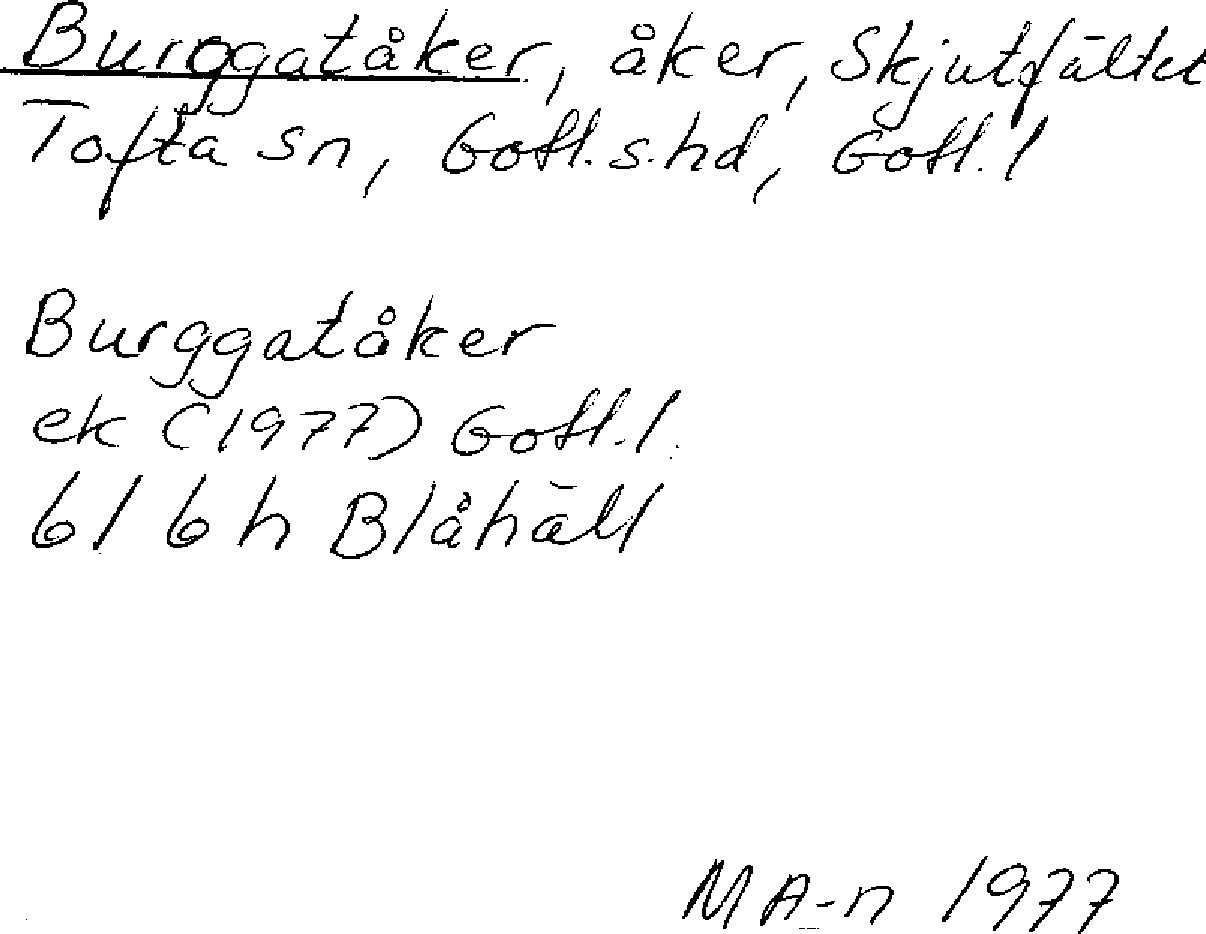 Burggatåker, åker, Skjutfältet
Tofta sn, Gotl. s. hd, Gotl. l
Burggatåker
ek (1977) Gotl. l.
6I 6h Blåhäll
MA-n 1977